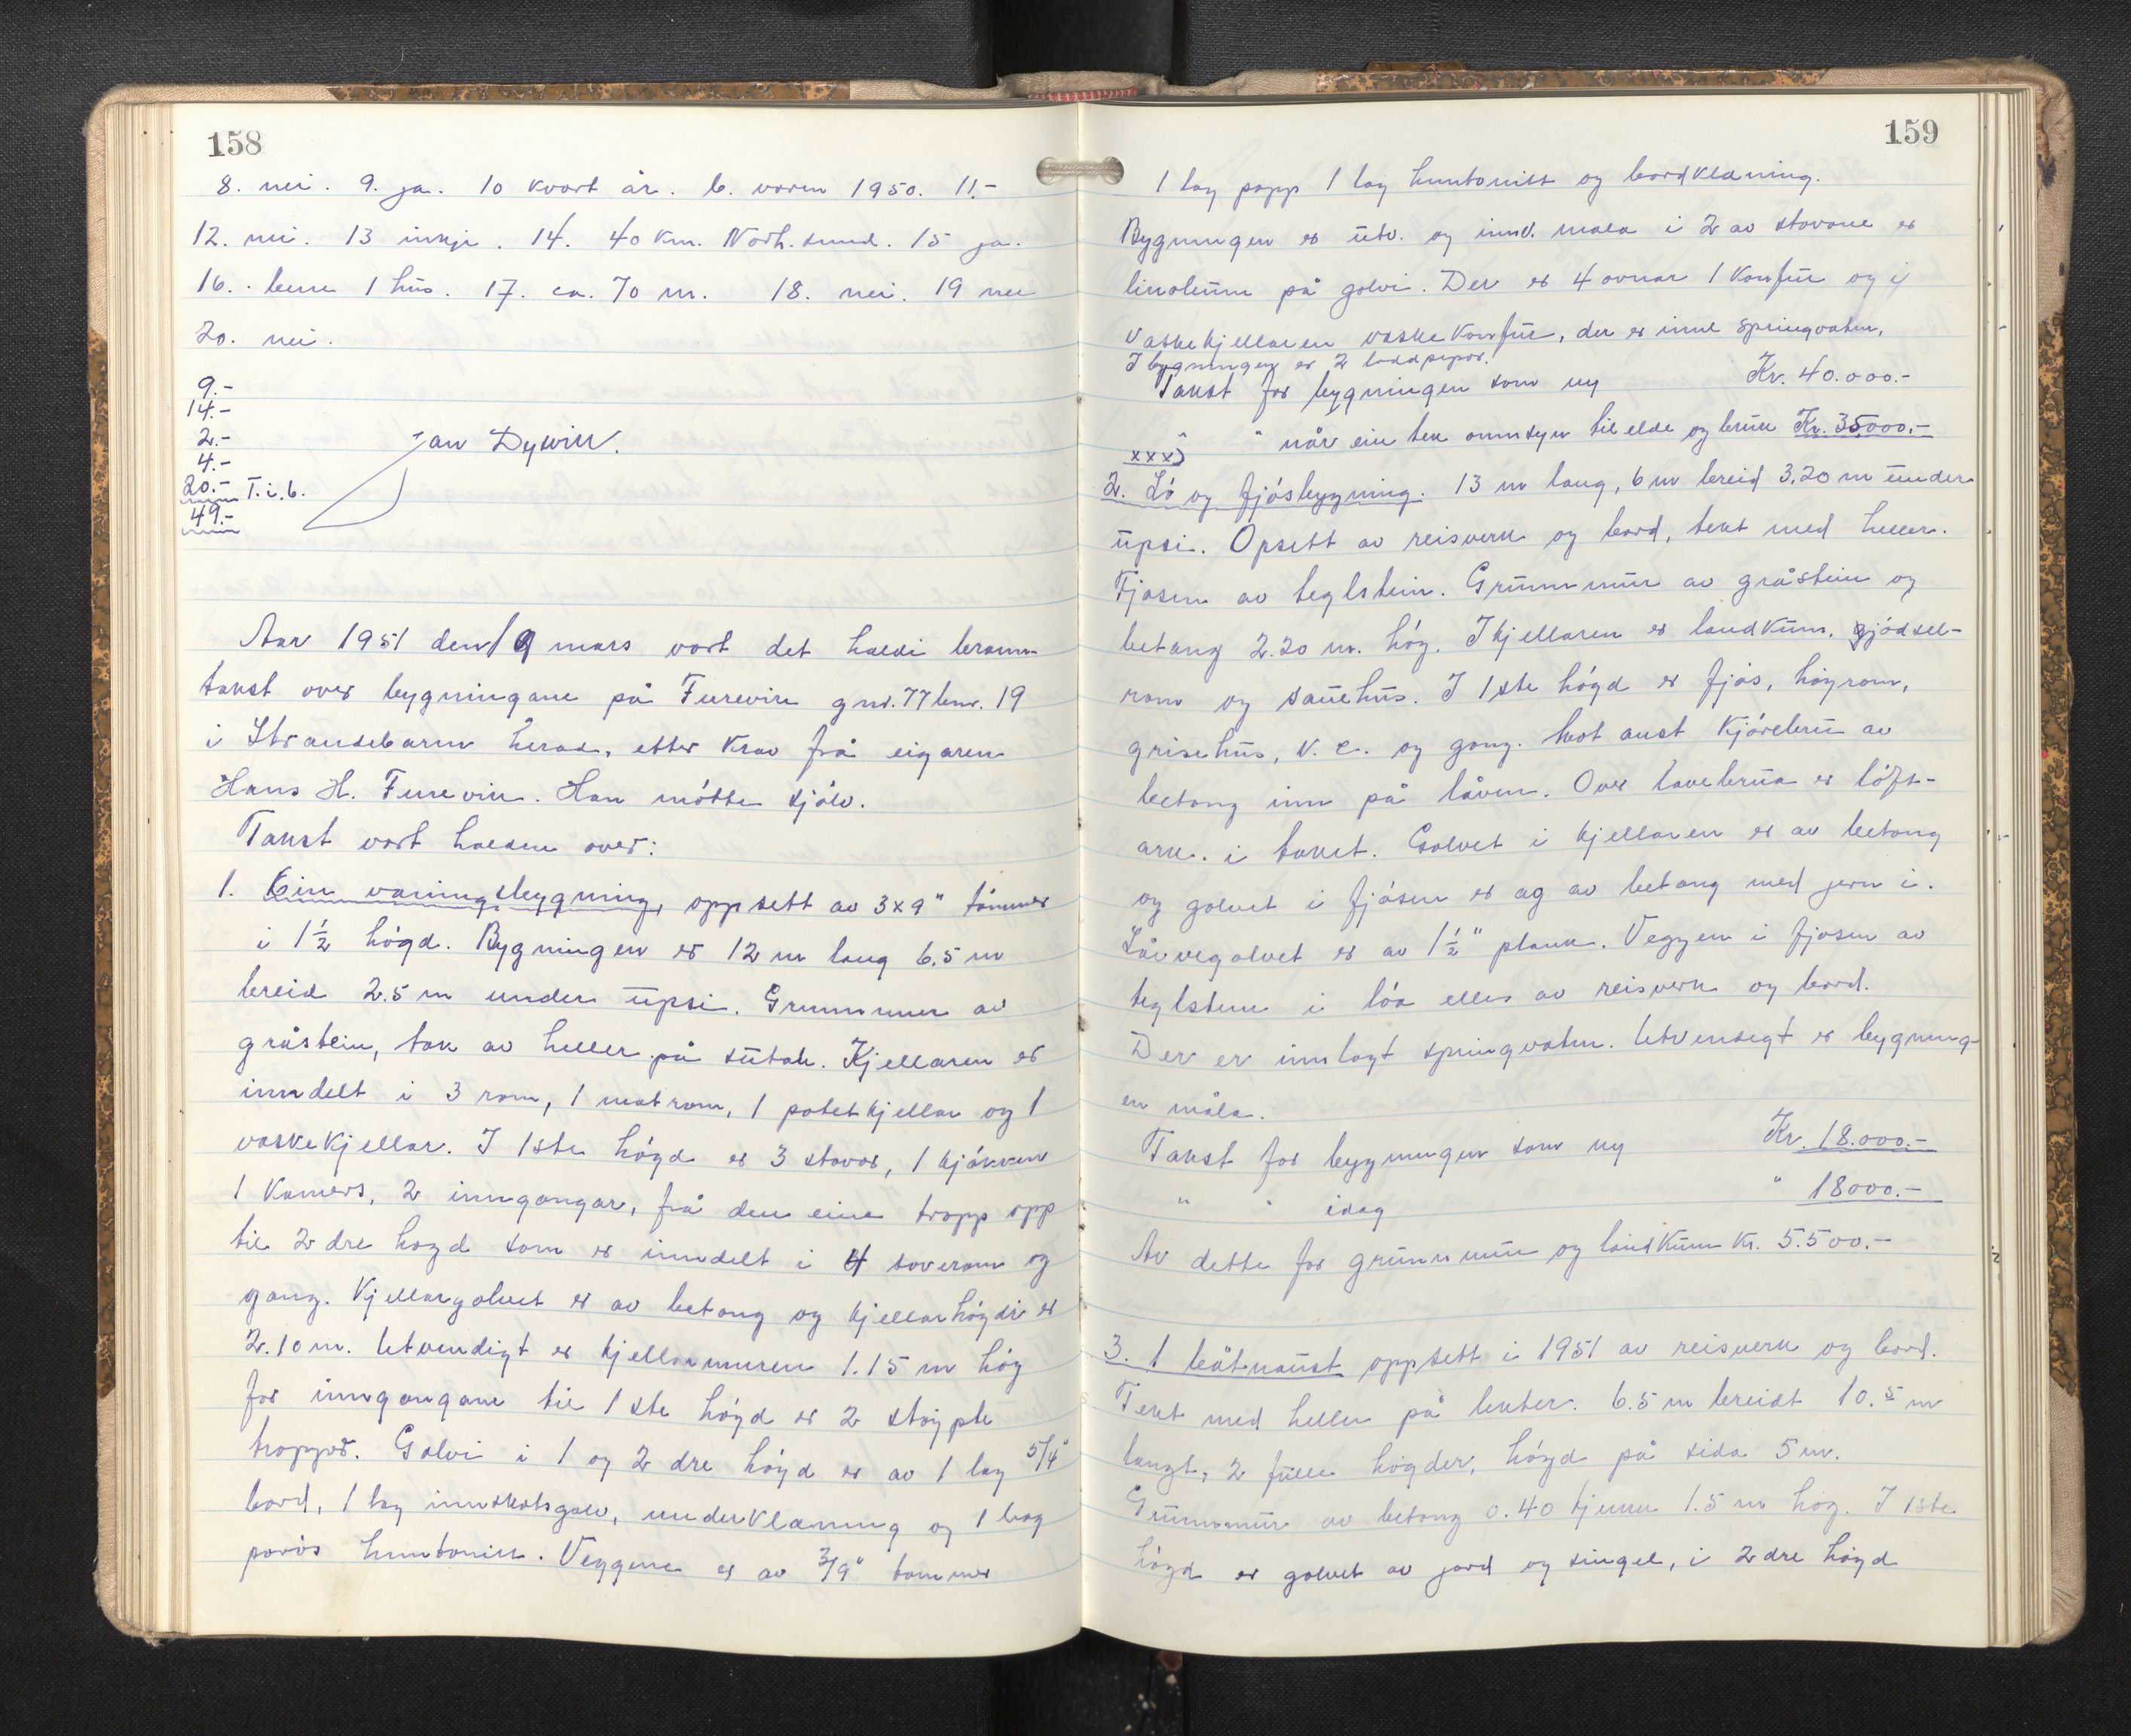 158
8. nei. 9. ja. 10 kvort år. b. voren 1950. 11.-
12. nei. 13 inkje. 14. 40 km. Norh.sund. 15 ja.
16. bere 1 hus. 17. ca. 70 m. 18. nei. 19 nei
20. nei.
9.-
14.-
2.-
4.-
20.- T.i.b.
49.-
Jan Dysvik.
Aar 1951 den 19 mars vart det haldi brann-
takst over bygningane på Furevik gnr. 77 bnr. 19
i Strandebarm herad, etter krav frå eigaren
Hans H. Furevik. Han møtte sjølv.
Takst vart halden over:
1. Ein vaningsbygning, oppsett av 3x9" tømmer
i 1½ høgd. Bygningen er 12 m lang 6.5 m
breid 2.5 m under upsi. Grunnmur av
gråstein, tak av heller på sutak. Kjellaren er
inndelt i 3 rom, 1 matrom, 1 potetkjellar og 1
vaskekjellar. I 1ste høgd er 3 stovor, 1 kjøkken
1 kamers, 2 inngangar, frå den eine trapp opp
til 2 dre høgd som er inndelt i 4 soverom og
gang. Kjellargolvet er av betong og kjellarhøgdi er
2.10 m. Utvendigt er kjellarmuren 1.15 m høg
for inngangane til 1 ste høgd er 2 støypte
trappor. Golvi i 1 og 2 dre høgd er av 1 lag 5/4"
bord, 1 lag innskotsgolv, underklæning og 1 lag
porøs huntonitt. Veggene er av 3/9" tømmer
159
1 lag papp 1 lag huntonitt og bordklæning.
Bygningen er utv. og innv. mala i 2 av stovone er
linoleum på golvi. Der er 4 ovnar 1 komfur og i
vaskekjellaren vaskekomfur, der er innl springvatn.
I bygningen er 2 loddpipor.
Takst for bygningen som ny Kr. 40.000.-
" når ein tek omnsyn til elde og bruk Kr. 35000.-
xxx)
2. Lø og fjøsbygning. 13 m lang, 6 m breid 3,20 m under
upsi. Opsett av reisverk og bord, tekt med heller.
Fjøsen av teglstein. Grunnmur av gråstein og
betong 2.20 m. høg. I kjellaren er landkum, gjødsel-
rom og sauehus. I 1ste høgd er fjøs, høyrom,
grisehus, v. c. og gang. Mot aust kjørebru av
betong inn på låven. Over lavebrua er løft-
ark. i taket. Golvet i kjellaren er av betong
og golvet i fjøsen er og av betong med jern i.
Låvegolvet er av 1½" plank. Veggen i fjøsen av
teglstein i løa elles av reisverk og bord.
Der er innlagt springvatn. Utvendigt er bygning-
en måla.
Takst for bygningen som ny Kr. 18.000.-
" " idag " 18000.-
Av dette for grunnmur og landkum kr. 5.500.-
3. 1 båtnaust oppsett i 1951 av reisverk og bord.
Tekt med heller på lekter. 6.5 m breidt 10.5 m
langt, 2 fulle høgder, høgd på sida 5 m.
Grunnmur av betong 0.40 tjukk 1.5 m høg. I 1ste
høgd er golvet av jord og singel, i 2 dre høgd